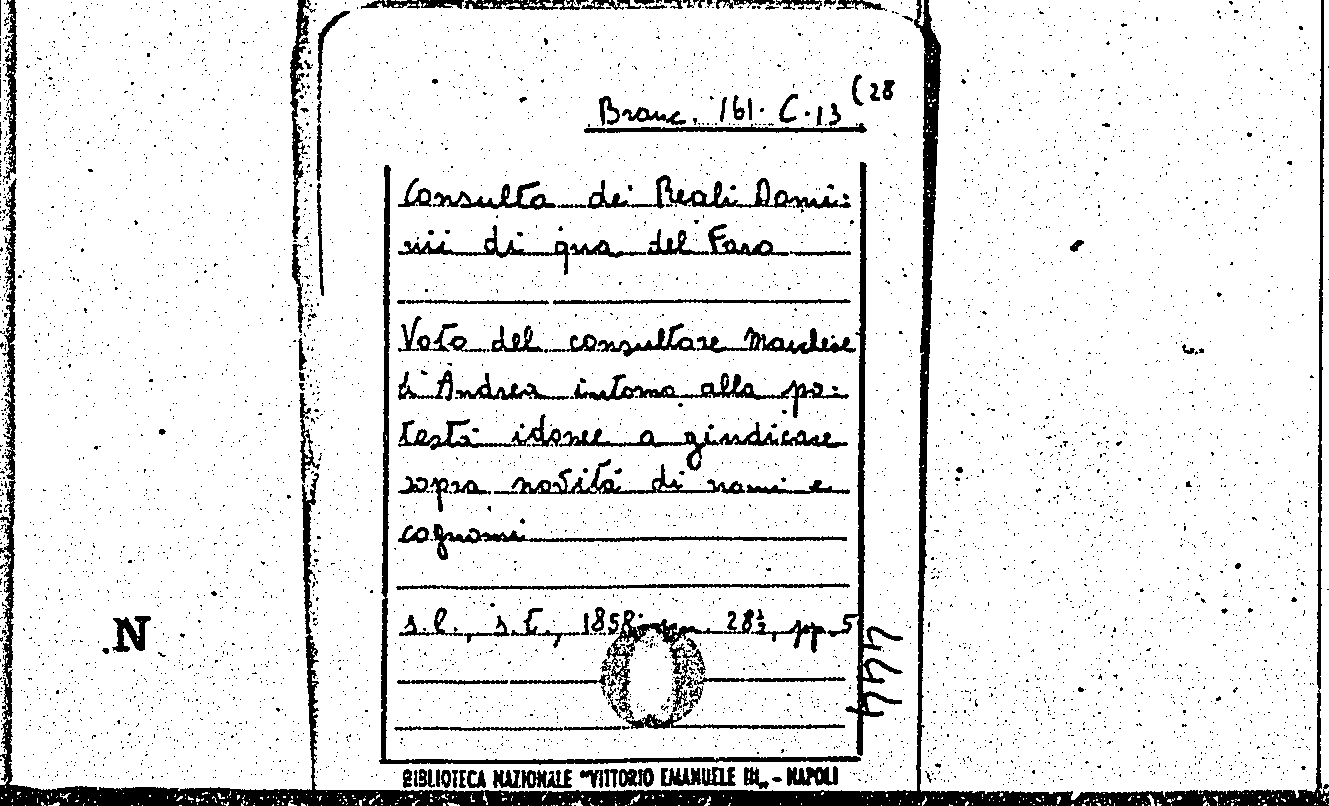 Branc. 161. C. 13 (28
Consulta dei Reali Domi=
nii di qua del Faro
Voto del consultore Marchese
d'Andrea intorno alla po=
testà idonee a giudicare
sopra novità di nomi e
cognomi
s.l., s.t., 1858, cm. 28½, pp. 5
444
.N
BIBLIOTECA NAZIONALE "VITTORIO EMANUELE III„ - NAPOLI